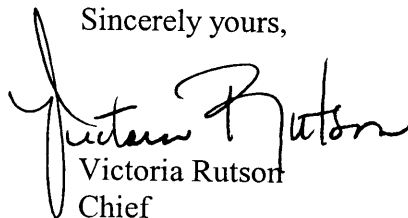 Sincerely yours,
Victoria Rutson
Victoria Rutson
Chief